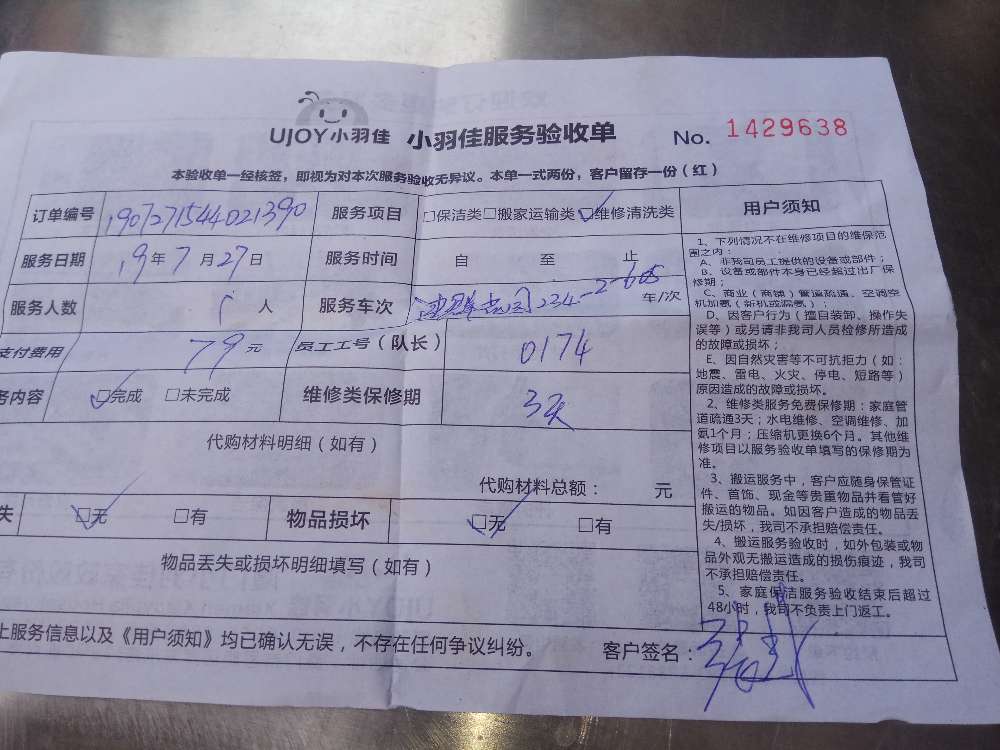 UJOY小羽佳 小羽佳服务验收单 No. 1429638
本验收单一经核签，即视为对本次服务验收无异议。本单一式两份，客户留存一份（红）
订单编号 1907271544021390 服务项目 □保洁类□搬家运输类☑维修清洗类
服务日期 19年7月27日 服务时间 自 至 止
服务人数 1 人 服务车次 234-2-605 车/次
支付费用 79元 员工工号（队长） 0174
务内容 ☑完成 □未完成 维修类保修期 3天
代购材料明细（如有）
代购材料总额： 元
失 ☑无 □有 物品损坏 ☑无 □有
物品丢失或损坏明细填写（如有）
上服务信息以及《用户须知》均已确认无误，不存在任何争议纠纷。 客户签名：
用户须知
1、下列情况不在维修项目的维保范
围之内：
A、非我司员工提供的设备或部件；
B、设备或部件本身已经超过出厂保
修期；
C、商业（商铺）管道疏通、空调空
机加氨（新机或漏氨）；
D、因客户行为（擅自装卸、操作失
误等）或另请非我司人员检修所造成
的故障或损坏；
E、因自然灾害等不可抗拒力（如：
地震、雷电、火灾、停电、短路等）
原因造成的故障或损坏。
2、维修类服务免费保修期：家庭管
道疏通3天；水电维修、空调维修、加
氨1个月；压缩机更换6个月。其他维
修项目以服务验收单填写的保修期为
准。
3、搬运服务中，客户应随身保管证
件、首饰、现金等贵重物品并看管好
搬运的物品。如因客户造成的物品丢
失/损坏，我司不承担赔偿责任。
4、搬运服务验收时，如外包装或物
品外观无搬运造成的损伤痕迹，我司
不承担赔偿责任。
5、家庭保洁服务验收结束后超过
48小时，我司不负责上门返工。